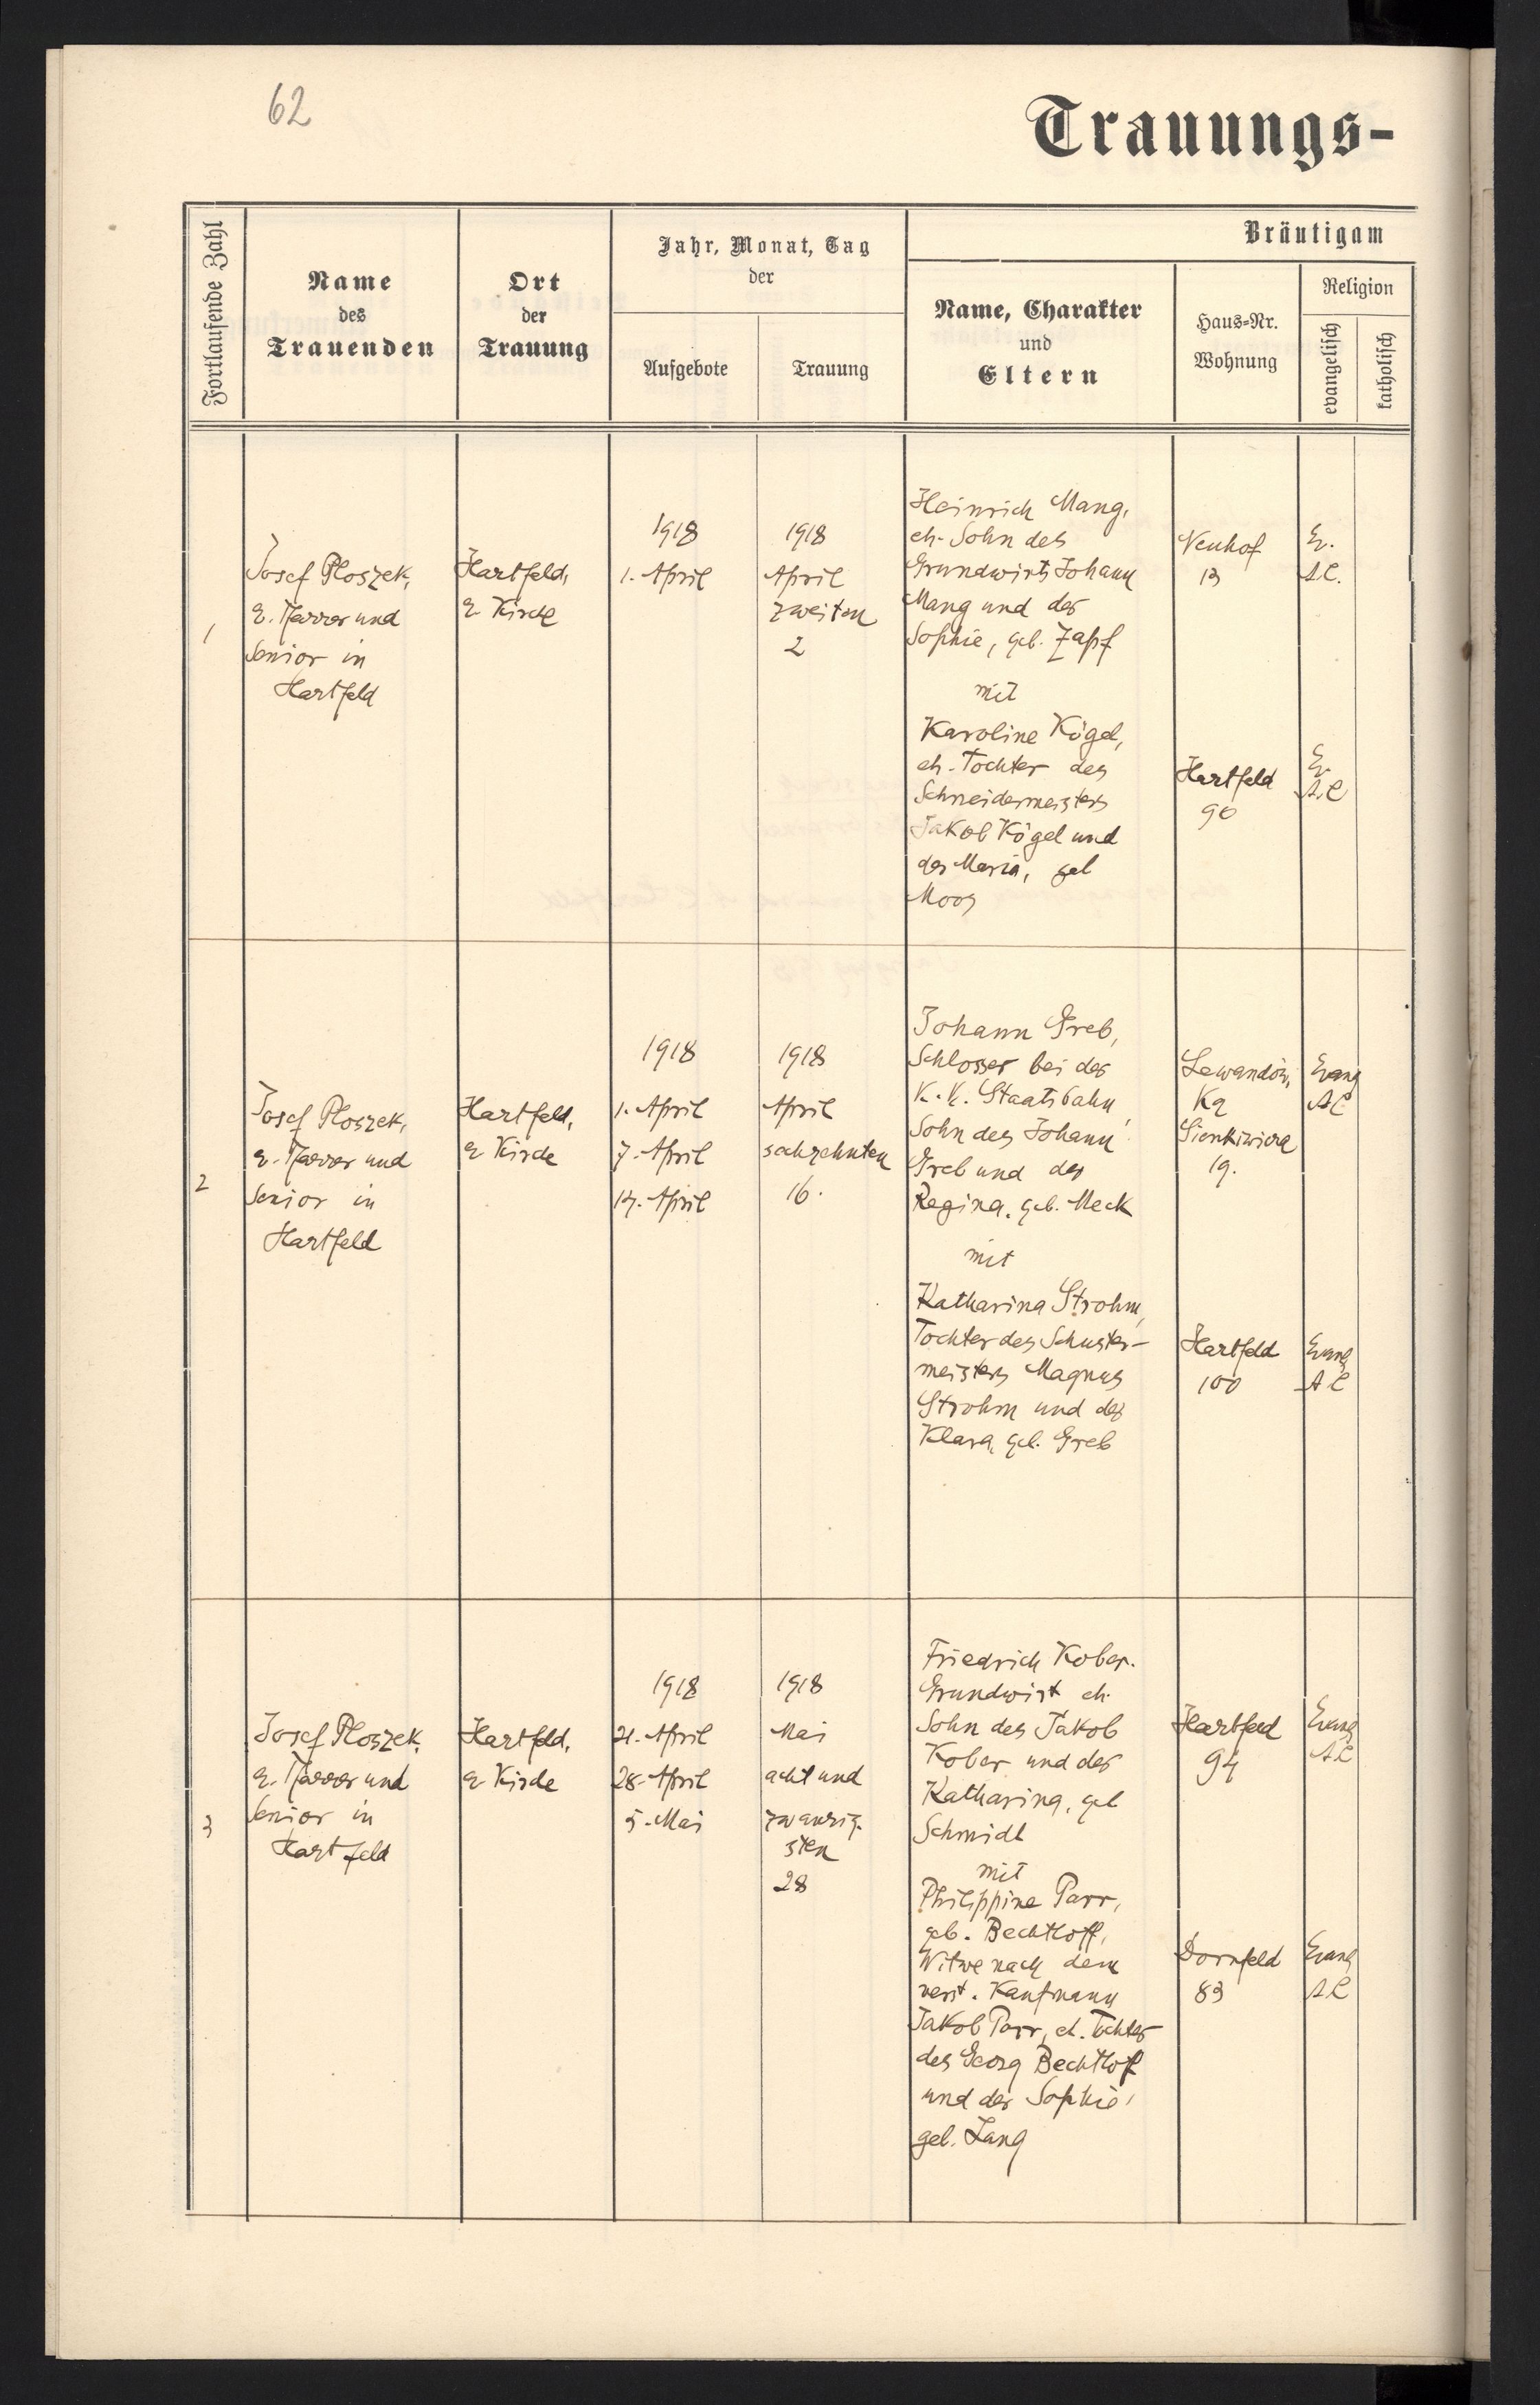 62
Trauungs-
Fortlaufende Zahl
Name
des
Trauenden
Ort
der
Trauung
Jahr, Monat, Tag
der
Aufgebote
Trauung
Bräutigam
Name, Charakter
und
Eltern
Haus-Nr.
Wohnung
Religion
evangelisch
katholisch
1
Josef Ploszek,
e. Pfarrer und
Senior in
Hartfeld
Hartfeld,
e Kirche
1918
1. April
1918
April
zweiten
2
Heinrich Mang,
eh. Sohn des
Grundwirts Johann
Mang und der
Sophie, geb. Zapf
mit
Karoline Kögel,
eh. Tochter des
Schneidermeisters
Jakob Kögel und
der Maria, geb
Moos
Neuhof
13
Ev.
A.C.
Hartfeld
90
Ev.
A.C
2
Josef Ploszek,
e. Pfarrer und
Senior in
Hartfeld
Hartfeld,
e Kirche
1918
1. April
7. April
14. April
1918
April
sechzehnten
16.
Johann Greb,
Schlosser bei der
K. K. Staatsbahn,
Sohn des Johann
Greb und der
Regina, geb. Meck
mit
Katharina Strohm,
Tochter des Schuster-
meisters Magnus
Strohm und der
Klara, geb. Greb
Lewandów,
Sienkiwicza
19.
Evang
AC
Hartfeld
100
Evang
A C
3
Josef Ploszek,
e. Pfarrer und
Senior in
Hartfeld
Hartfeld,
e Kirche
1918
21. April
28. April
5. Mai
1918
Mai
acht und
zwanzig-
sten
28
Friedrich Kober.
Grundwirt eh.
Sohn des Jakob
Kober und der
Katharina, geb
Schmidt
mit
Philippine Parr,
geb. Bechtloff,
Witwe nach dem
verst. Kaufmann
Jakob Parr, eh. Tochter
des Georg Bechtloff
und der Sophie,
geb. Lang
Hartfeld
94
Evang
AC
Dornfeld
83
Evang
AC